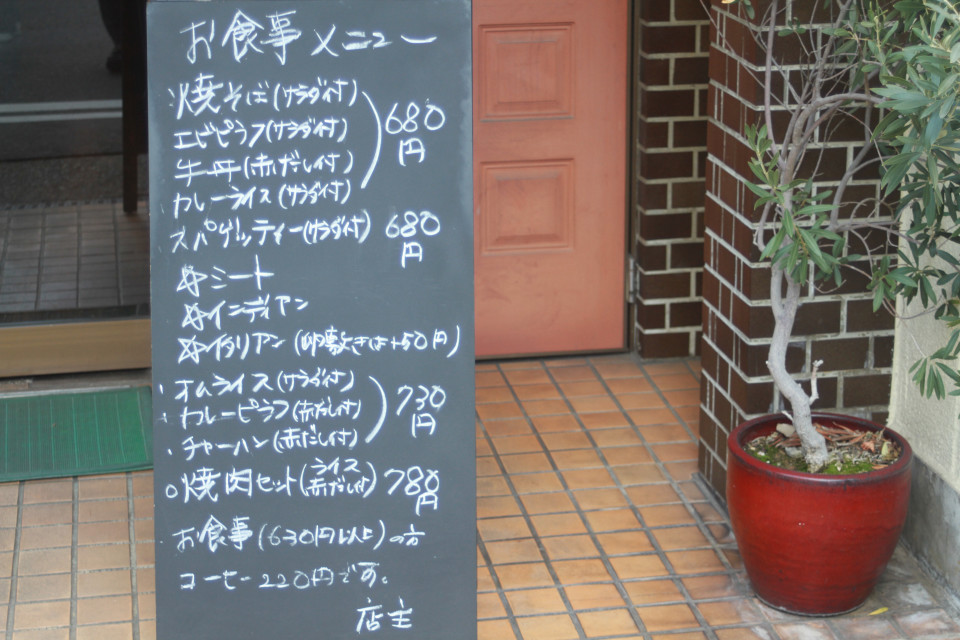 お食事メニュー
焼そば(サラダ付)
エビピラフ(サラダ付)
牛丼(赤だし付)
680円
カレーライス(サラダ付)
スパゲッティー(サラダ付) 680円
☆ミート
☆インディアン
☆イタリアン(卵敷きは+50円)
・オムライス(サラダ付)
・カレーピラフ(赤だし付)
730円
・チャーハン(赤だし付)
○焼肉セット(ライス 赤だし付) 780円
お食事(630円以上)の方
コーヒー220円です。
店主